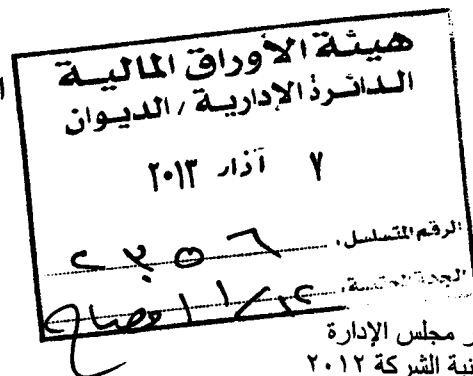 هيئة الأوراق المالية
الدائرة الإدارية / الديوان
٧ آذار ٢٠١٣
الرقم المتسلسل: ٢٣٥٦
الجهة المختصة: ١١/١٢
مجلس الإدارة
الشركة ٢٠١٢